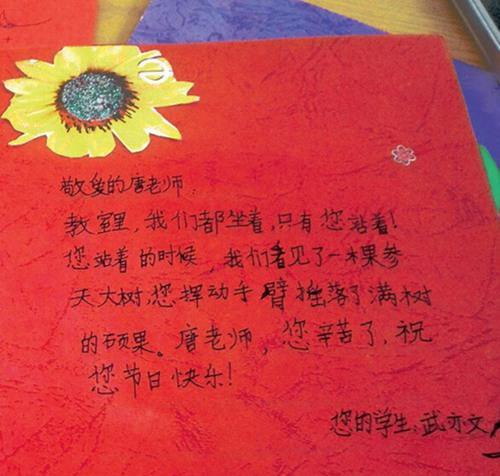 敬爱的唐老师：
教室里，我们都坐着，只有您站着！
您站着的时候，我们看见了一棵参
天大树，您挥动手臂摇落了满树
的硕果。唐老师，您辛苦了，祝
您节日快乐！
您的学生：武亦文